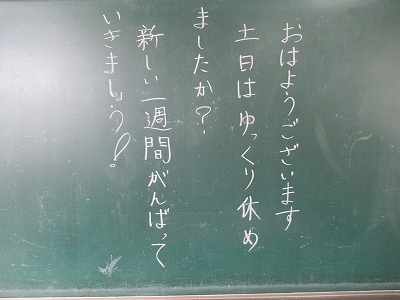 おはようございます
土日はゆっくり休め
ましたか?
新しい一週間がんばって
いきましょう!